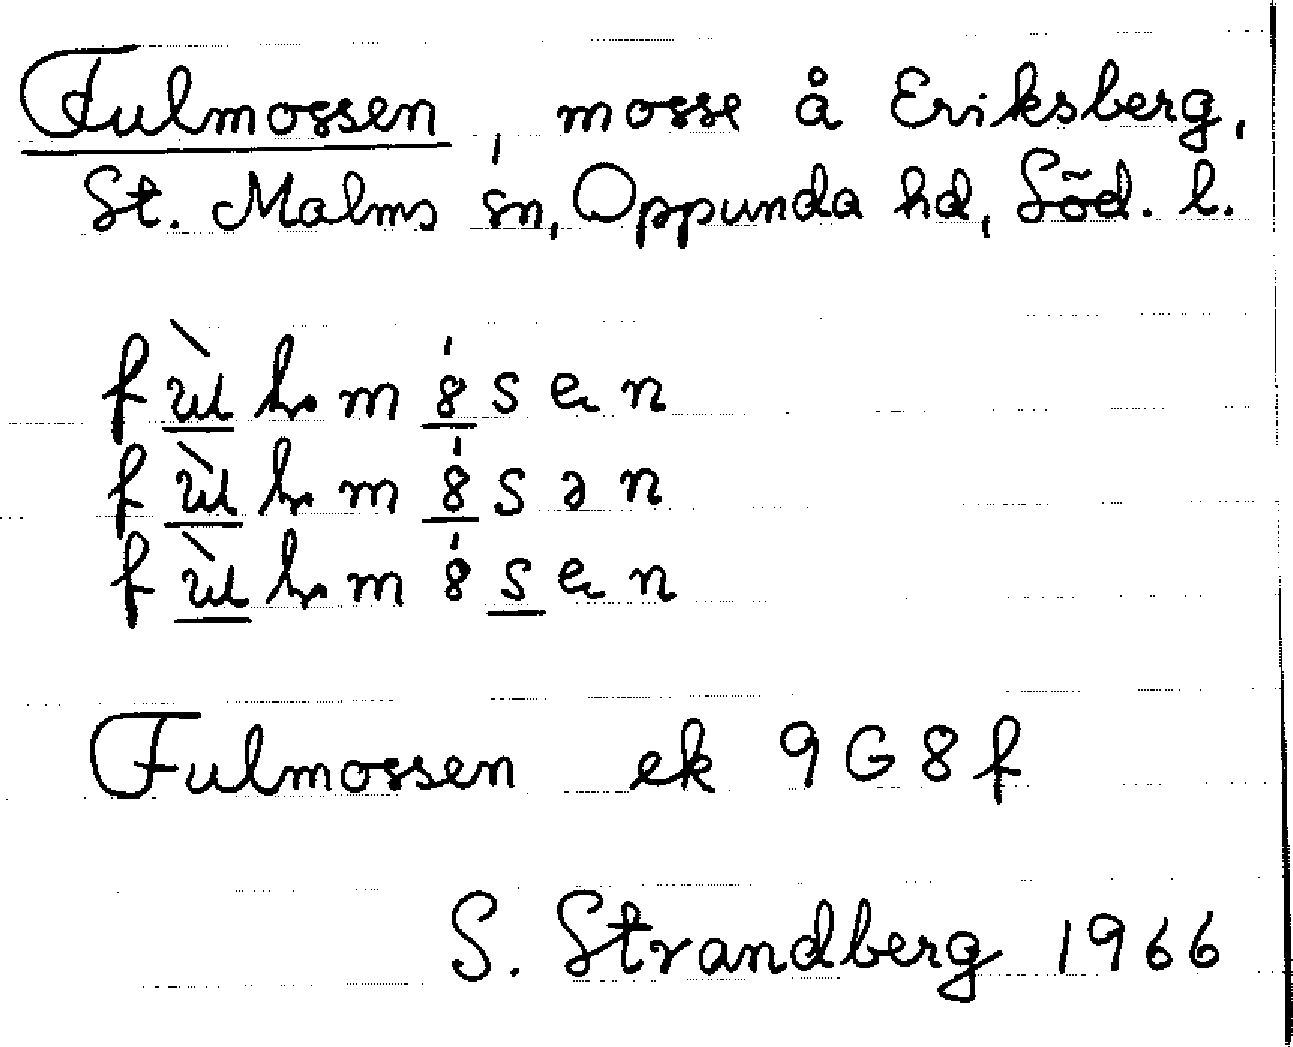 Fulmossen, mosse å Eriksberg,
St. Malms sn, Oppunda hd, Söd. l.
Fulmossen ek 9G8f
S. Strandberg 1966